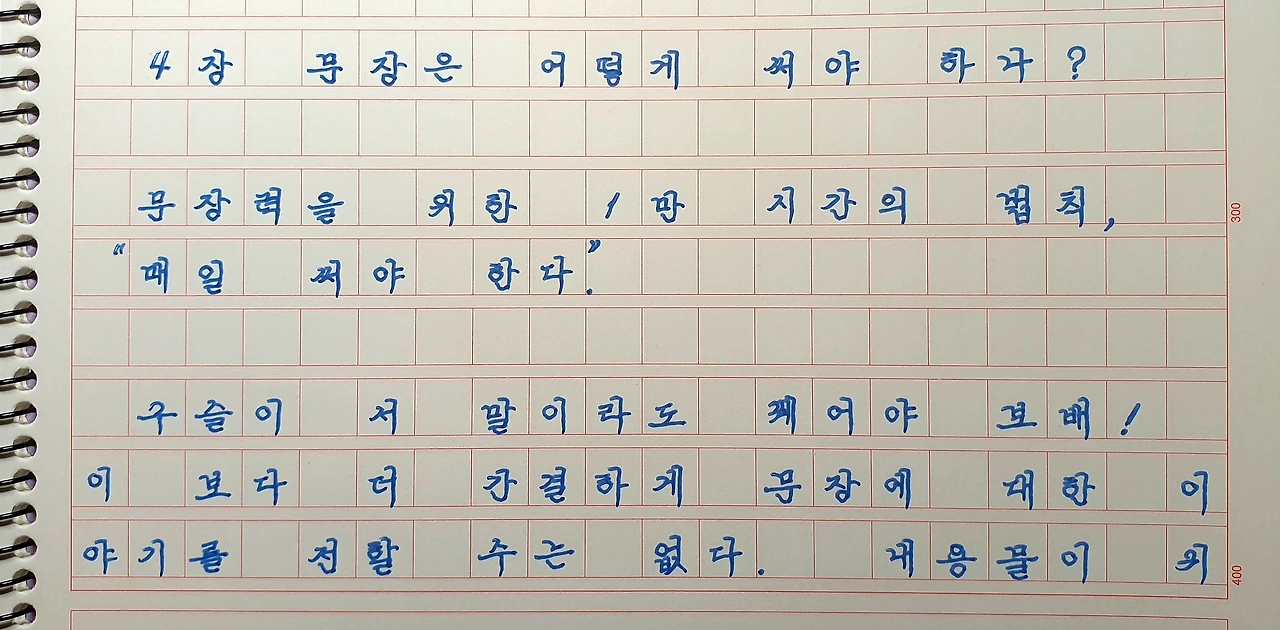 4장 문장은 어떻게 써야 하나?
문장력을 위한 1만 시간의 법칙,
"매일 써야 한다."
구슬이 서 말이라도 꿰어야 보배!
이 보다 더 간결하게 문장에 대한 이
야기를 전할 수는 없다. 내용물이 뭐
300
400